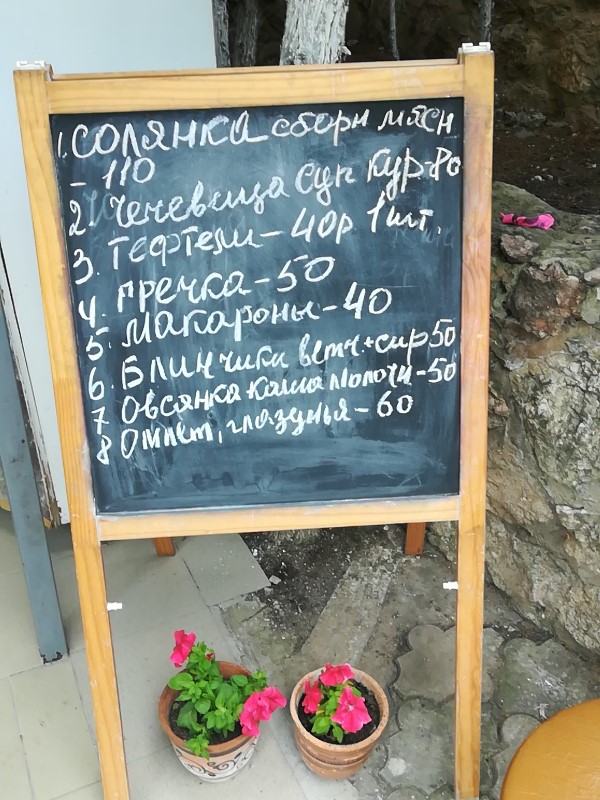 1. СОЛЯНКА сборн мясн
- 110
2. Чечевица суп кур-80
3. Тефтели - 40р 1шт.
4. Гречка - 50
5. Макароны - 40
6. Блинчики ветч.+сыр 50
7 Овсянка каша молочн-50
8 Омлет, глазунья - 60